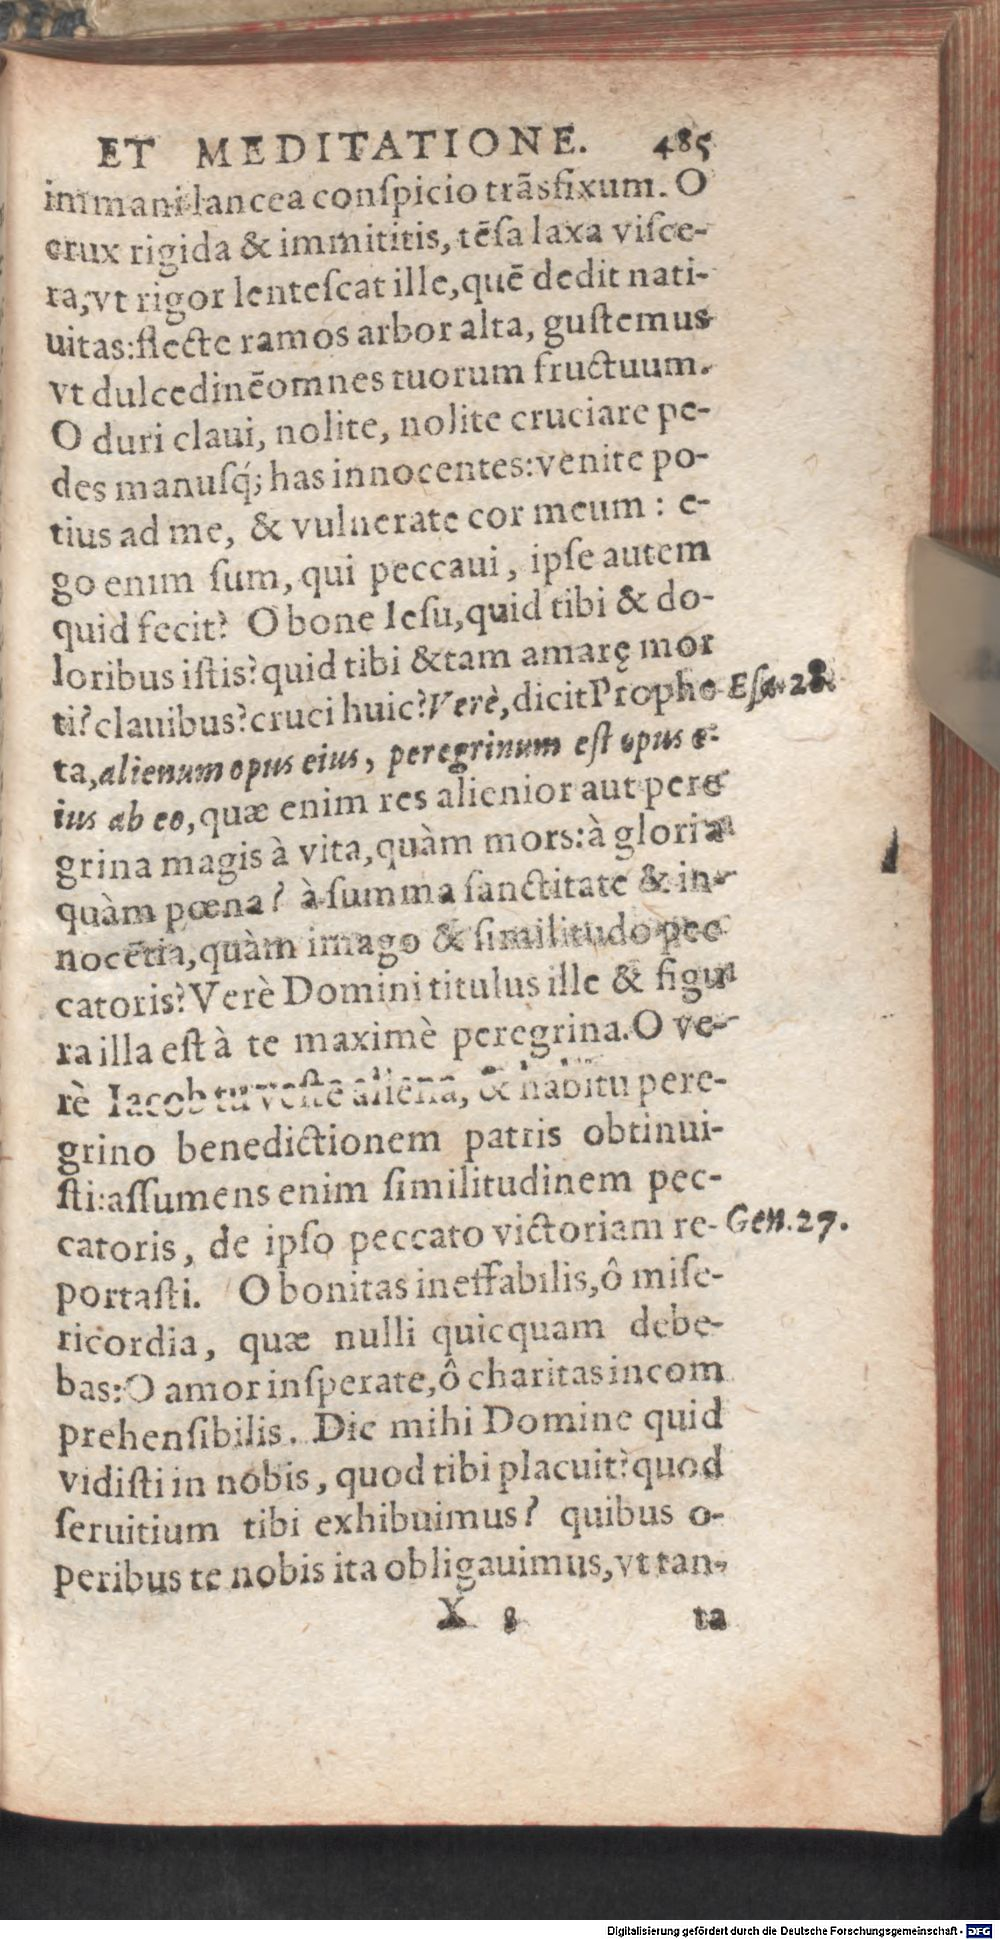 ET MEDITATIONE. 485
immani lancea conſpicio trãsfixum. O
crux rigida & immititis, tẽſa laxa viſce-
ra, vt rigor lenteſcat ille, quẽ dedit nati-
uitas: flecte ramos arbor alta, guſtemus
vt dulcedinẽ omnes tuorum fructuum.
O duri claui, nolite, nolite cruciare pe-
des manuſq́; has innocentes: venite po-
tius ad me, & vulnerate cor meum : e-
go enim ſum, qui peccaui, ipſe autem
quid fecit? O bone Ieſu, quid tibi & do-
loribus iſtis? quid tibi & tam amarę mor
ti? clauibus? cruci huic? Verè, dicit Prophe Eſa. 28.
ta, alienum opus eius, peregrinum eſt opus e-
ius ab eo, quæ enim res alienior aut pere
grina magis à vita, quàm mors: à gloria
quàm pœna? à ſumma ſanctitate & in-
nocẽtia, quàm imago & ſimilitudo pec
catoris? Verè Domini titulus ille & figu
ra illa eſt à te maximè peregrina. O ve-
rè Iacob tu veſte aliena, & habitu pere-
grino benedictionem patris obtinui-
ſti: aſſumens enim ſimilitudinem pec-
catoris, de ipſo peccato victoriam re- Gen. 27.
portaſti. O bonitas ineffabilis, ô miſe-
ricordia, quæ nulli quicquam debe-
bas: O amor inſperate, ô charitas incom
prehenſibilis. Dic mihi Domine quid
vidiſti in nobis, quod tibi placuit? quod
ſeruitium tibi exhibuimus? quibus o-
peribus te nobis ita obligauimus, vt tan-
X 8 ta
Digitalisierung gefördert durch die Deutsche Forschungsgemeinschaft - DFG